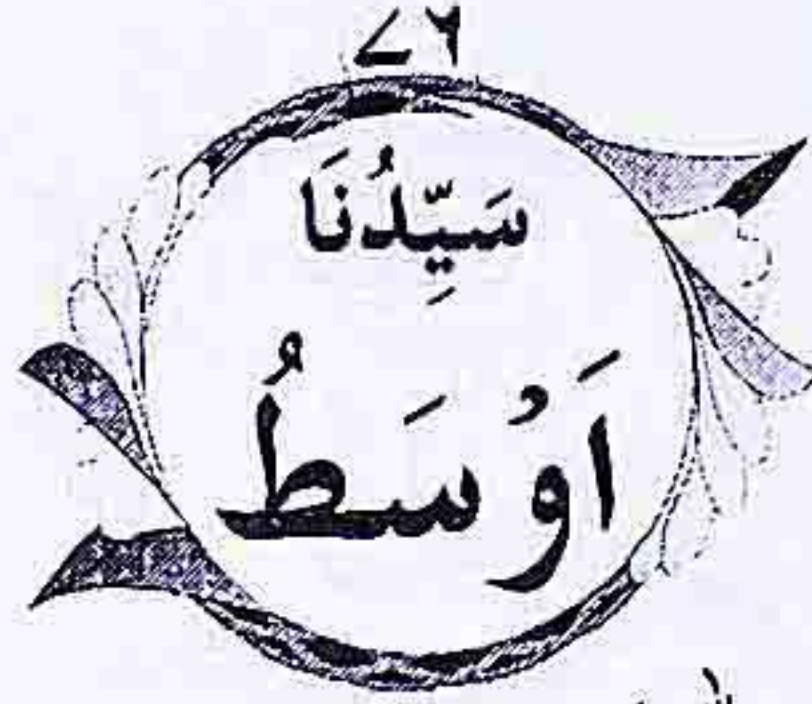 ٧٦
سَيِّدُنَا
اَوْسَطُ